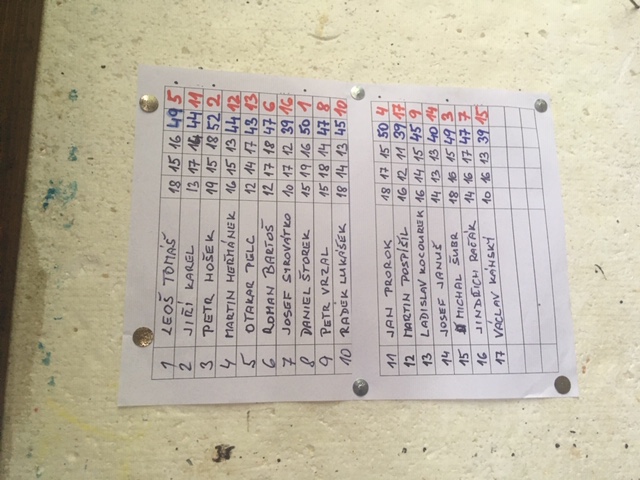 1 LEOŠ TOMÁŠ 18 15 16 49 5
2 JIŘÍ KAREL 13 17 14 44 11
3 PETR HOŠEK 19 15 18 52 2
4 MARTIN HEŘMÁNEK 16 15 13 44 12
5 OTAKAR PELC 12 14 17 43 13
6 ROMAN BARTOŠ 12 17 18 47 6
7 JOSEF SYROVÁTKO 10 17 12 39 16
8 DANIEL ŠTOREK 15 19 16 50 1
9 PETR VRZAL 15 18 14 47 8
10 RADEK LUKÁŠEK 18 14 13 45 10
11 JAN PROROK 18 17 15 50 4
12 MARTIN POSPÍŠIL 16 12 11 39 17
13 LADISLAV KOCOUREK 16 14 15 45 9
14 JOSEF JANUŠ 14 13 13 40 14
15 MICHAL ŠUBR 18 16 15 49 3
16 JINDŘICH 14 16 17 47 7
17 VÁCLAV KÁNSKÝ 10 16 13 39 15